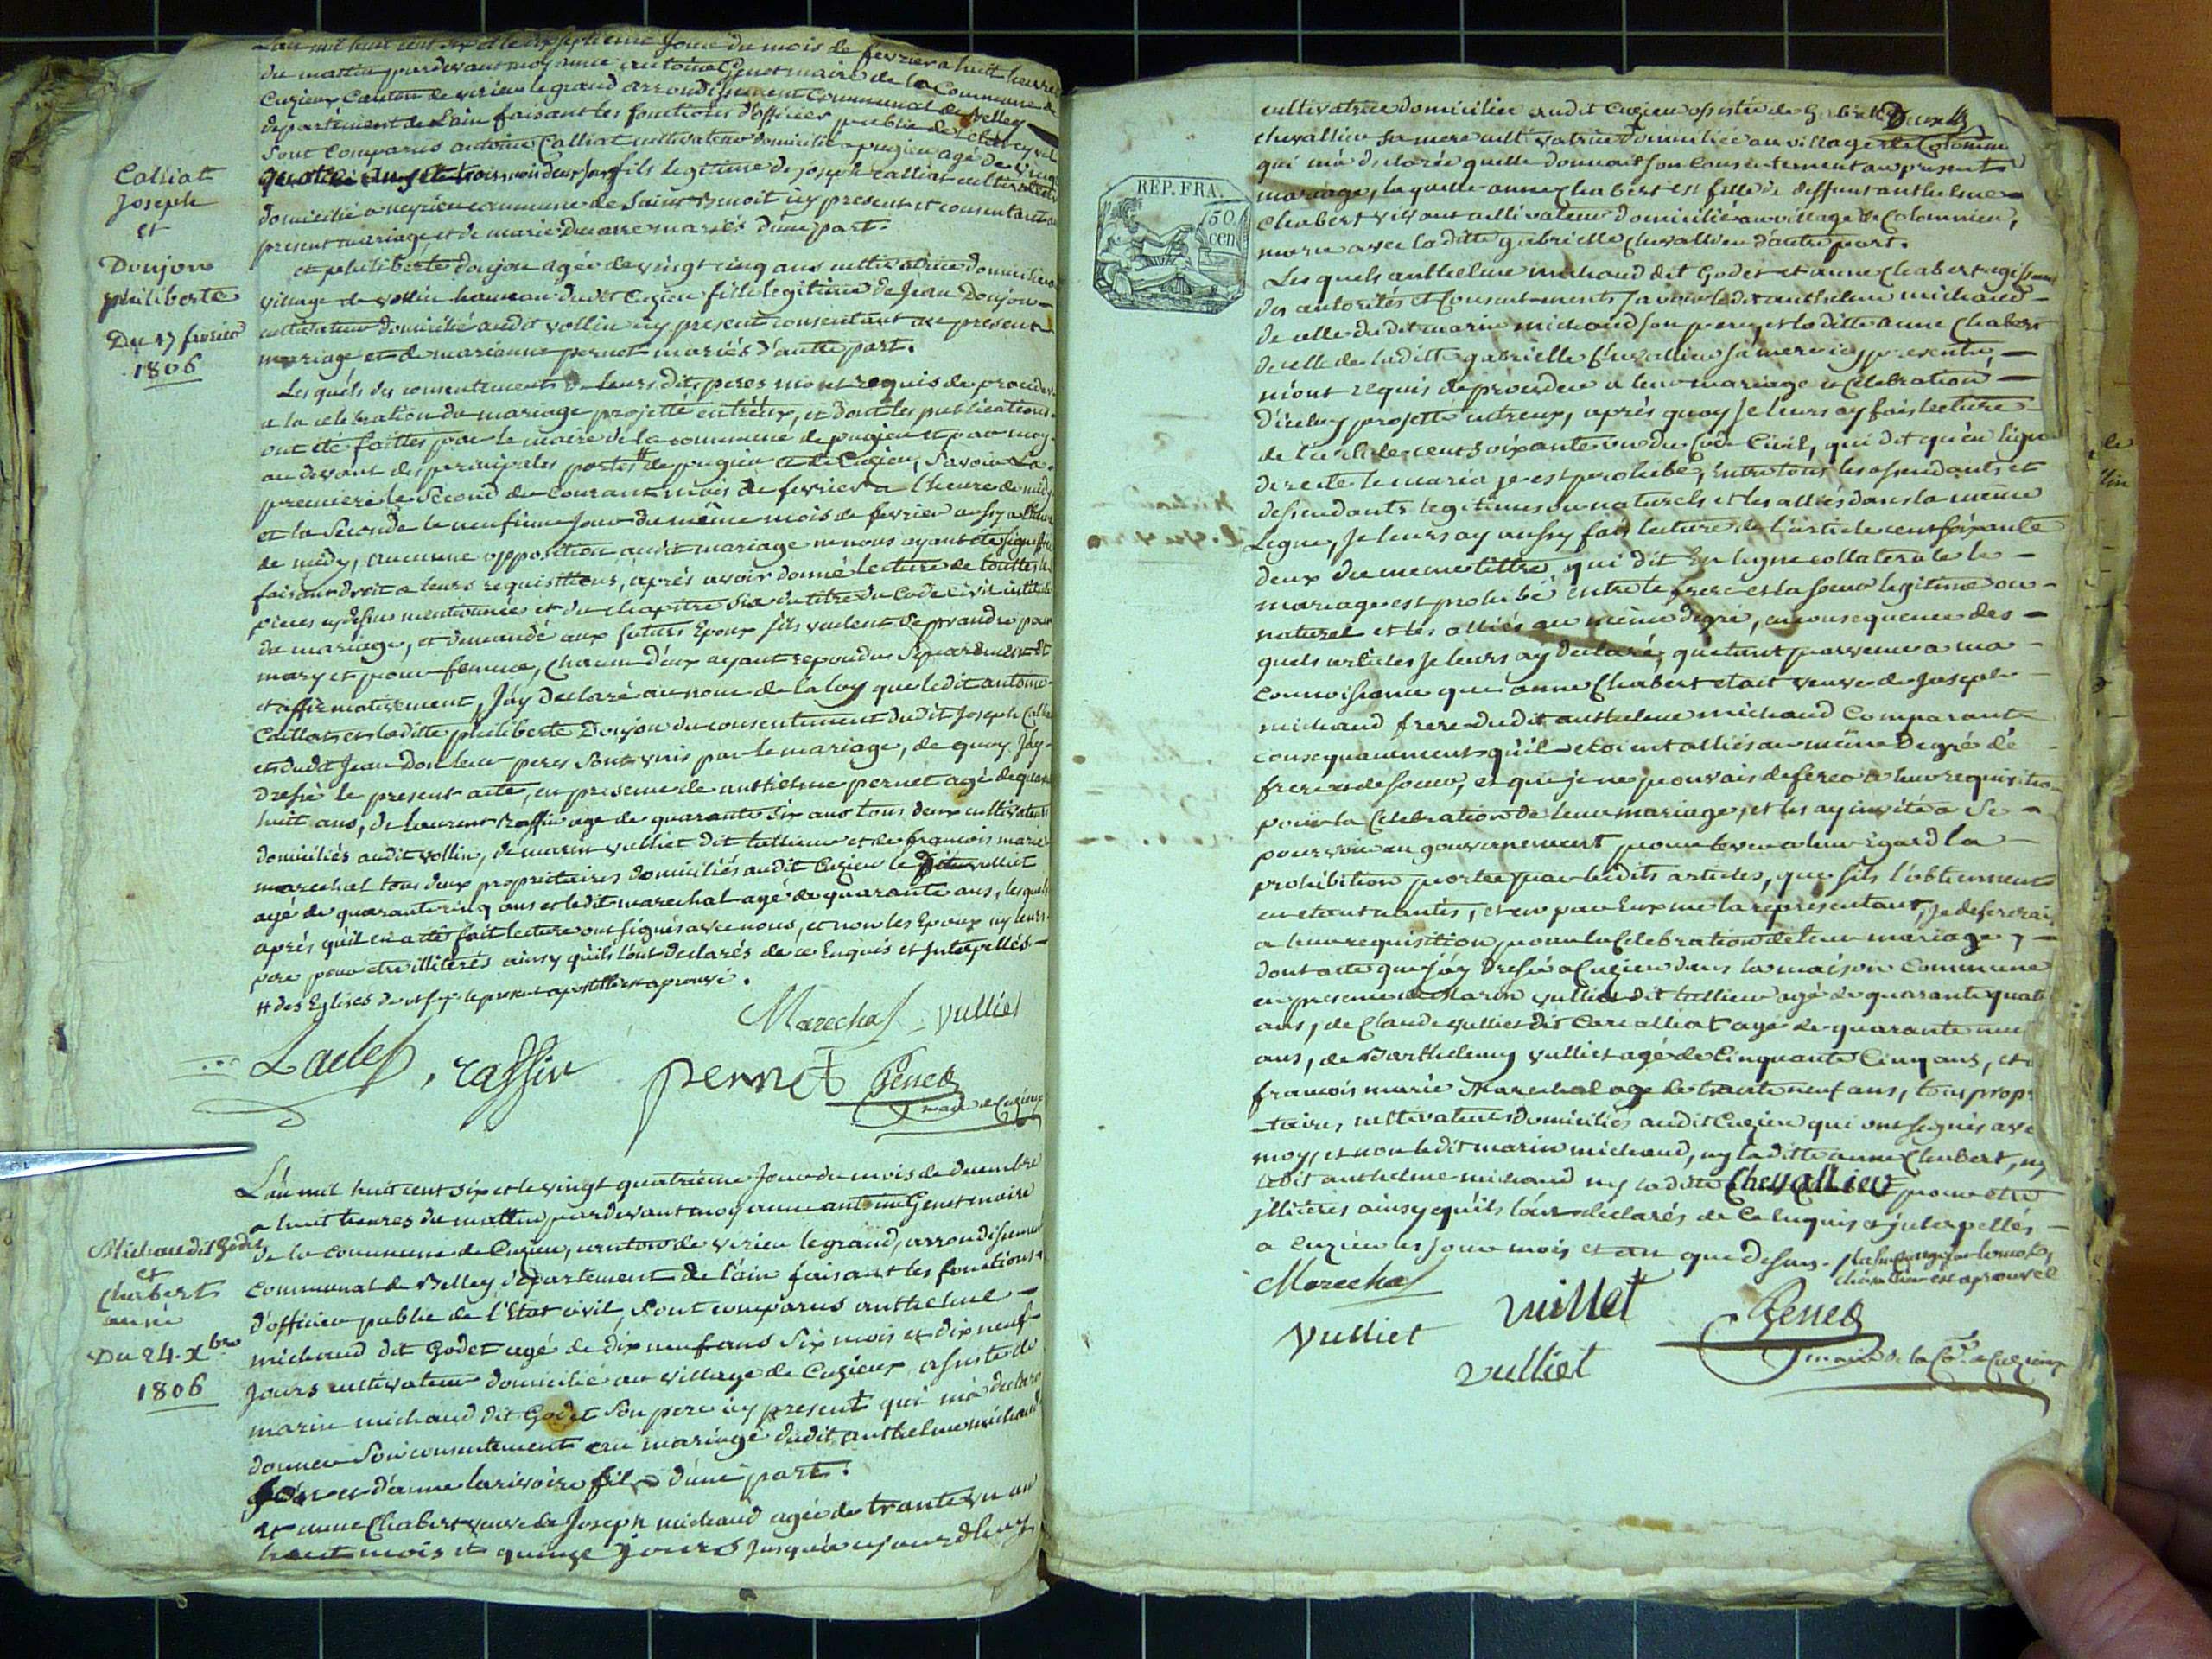 L'an mil huit cent six et le dix septieme Jour du mois de fevrier a huit heures
du mattin pardevant moy anne antoine Genet maire de la Commune de
Cuzieux Canton de virieu le grand arrondissement Communal de Belley
departement de l'ain faisant les fonctions d'officier public de l'etat civil
Sont Comparus antoine Calliat cultivateur domicilié a pugieu agé de vingt
quatre ans et trois mois deux jours fils legitime de joseph Calliat cultivateur
domicilié a neyrieu commune de Saint Benoit icy present et consentant au
present mariage et de marie mariés d'une part.
et philiberte donjon agée de vingt cinq ans cultivatrice domiciliée
village de vollin hameau dudit Cuzieu fille legitime de Jean Donjon
cultivateur domicilié audit vollin icy present consentant au present
mariage et de marianne pernet mariés d'autre part.
Les quels du consentements de leurs dits peres m'ont requis de proceder
a la celebration du mariage projetté entréux, et dont les publications
ont été faittes par le maire de la commune de pugieu et par moy
au devant des principales portes # de pugieu et de Cuzieu, Savoir La
premiere le Second du Courant mois de fevrier a l'heure de midy
et la Seconde le neufieme Jour du même mois de fevrier aussy a l'heure
de midy, aucunne opposition audit mariage ne nous ayant été signiffiée
faisant droit a leurs requisitions, aprés avoir donné lecture de touttes les
pieces cydessus mentionnée et du chapitre Six du titre du Code Civil intitulé
du mariage, et demandé aux futurs Epoux s'ils veulent se prandre pour
mary et pour femme, chacun d'eux ayant repondu Separement et
et affirmativement, J'ay declaré au nom de la loy que ledit antoine
Calliat et laditte philiberte Donjon du consentement dudit Joseph Calliat
et dudit Jean Don leur peres Sont unis par le mariage, de quoy J'ay
dressé le present acte, en presence de anthelme pernet agé de quarante
huit ans, de laurent Raffin agé de quarante six ans tous deux cultivateurs
domiciliés audit vollin, de marin vulliet dit tallieur et de francois marie
marechal tous deux proprietaires domiciliés audit Cuzieu le dit vulliet
agé de quarante cinq ans et ledit marechal agé de quarante ans, lesquels
aprés qu'il en a été fait lecture ont signés avec nous, et non les Epoux ny leurs
pere pour etre illiterés ainsy qu'ils l'ont declarés de ce Enquis et Interpellés
# des Eglises le present apostille est aprouvé.
Marechal vulliet
raffin pernet Genet
maire de Cuzieux
Calliat
Joseph
et
Donjon
philiberte
Du 17 fevrier
1806
L'an mil huit cent six et le vingt quatrieme Jour du mois de decembre
a huit heures du mattin, pardevant moy anne antoine Genet maire
de la Commune de Cuzieu, canton de virieu le grand, arrondissement
Communal de Belley departement de l'ain faisant les fonctions
d'officier public de l'Etat civil, Sont comparus anthelme
michaud dit Godet agé de dix neuf ans Six mois et dix neuf
Jours cultivateur domicilié au village de Cuzieux assisté de
marin michaud dit Godet Son pere icy present qui m'a declaré
donner Son consentement au mariage dudit anthelme michaud
et d'anne larivoire fils d'une part.
et anne Chabert veuve de Joseph michaud agée de trante un an
huit mois et quinze jours Jusqu'a aujourdhuy
Michaud dit Godet
et
Chabert
anne
Du 24. Xbre
1806
REP. FRA.
50
cen
cultivatrice domiciliée audit Cuzieu assistée de Gabrielle
chevallier sa mere cultivatrice domiciliée au village de Colomieu
qui m'a declarée quelle donnait Son Consentement au present
mariage, laquelle anne Chabert est fille de deffunt anthelme
Chabert vivant cultivateur domicilié au village de Colomieu,
marié avec la ditte gabrielle chevallier d'autre part.
Les quels anthelme michaud dit Godet et anne Chabert agissant
des autorités et Consentements Savoir ledit anthelme michaud
de celle dudit marin michaud son pere, et laditte anne Chabert
de celle de laditte gabrielle Chevallier sa mere icy presente,
m'ont requis de proceder a leur mariage et Celebration
d'iceluy projetté entreux, aprés quoy Je leurs ay fais lecture
de l'article cent Soixante un du Code Civil, qui dit qu'en ligne
directe le mariage est prohibé, entre tous les assendants et
dessendants legitimes ou naturels et les alliés dans la même
Ligne, Je leurs ay aussy fais lecture de l'article cent soixante
deux du meme tittre, qui dit En ligne collaterale le
mariage est prohibé entre le frere et la soeur legitime ou
naturel et les alliés au même degré, en consequence des
quels articles Je leurs ay declaré, qu'etant parvenu a ma
connoissance que anne Chabert etait veuve de Joseph
michaud frere dudit anthelme michaud Comparant
consequamment qu'ils etoient alliés au même Degré de
frere et de soeur, et que je ne pouvais deferer a leur requisition
pour la Celebration de leur mariage, et les ay invité a Se
pourvoir au gouvernement pour lever a leur Egard la
prohibition portée par lesdits articles, que sils l'obtiennent
en etant nantis, et en par Eux me la representant, Je defererai
a leur requisition pour la Celebration de leur mariage,
dont acte que j'ay dressé a Cuzieu dans la maison Commune
en presence de Marin vulliet dit tallieur agé de quarante quat
ans, de Claude vulliet dit Carcalliat agé de quarante neuf
ans, de Barthelemy vulliet agé de Cinquante Cinq ans, et
francois marie Marechal agé de trante neuf ans, tous prop
taires, cultivateurs domiciliés audit Cuzieu qui ont signés avec
moy, et non ledit marin michaud, ny laditte anne Chabert, ny
ledit anthelme michaud ny laditte Chevallier pour etre
illiterés ainsy qu'ils l'ont declarés de Ce Enquis et jnterpellés
a Cuzieu les jour mois et an que dessus.
chevallier est aprouvé
Marechal
vulliet vuillet Genet
vulliet maire de la Cne de Cuzieux